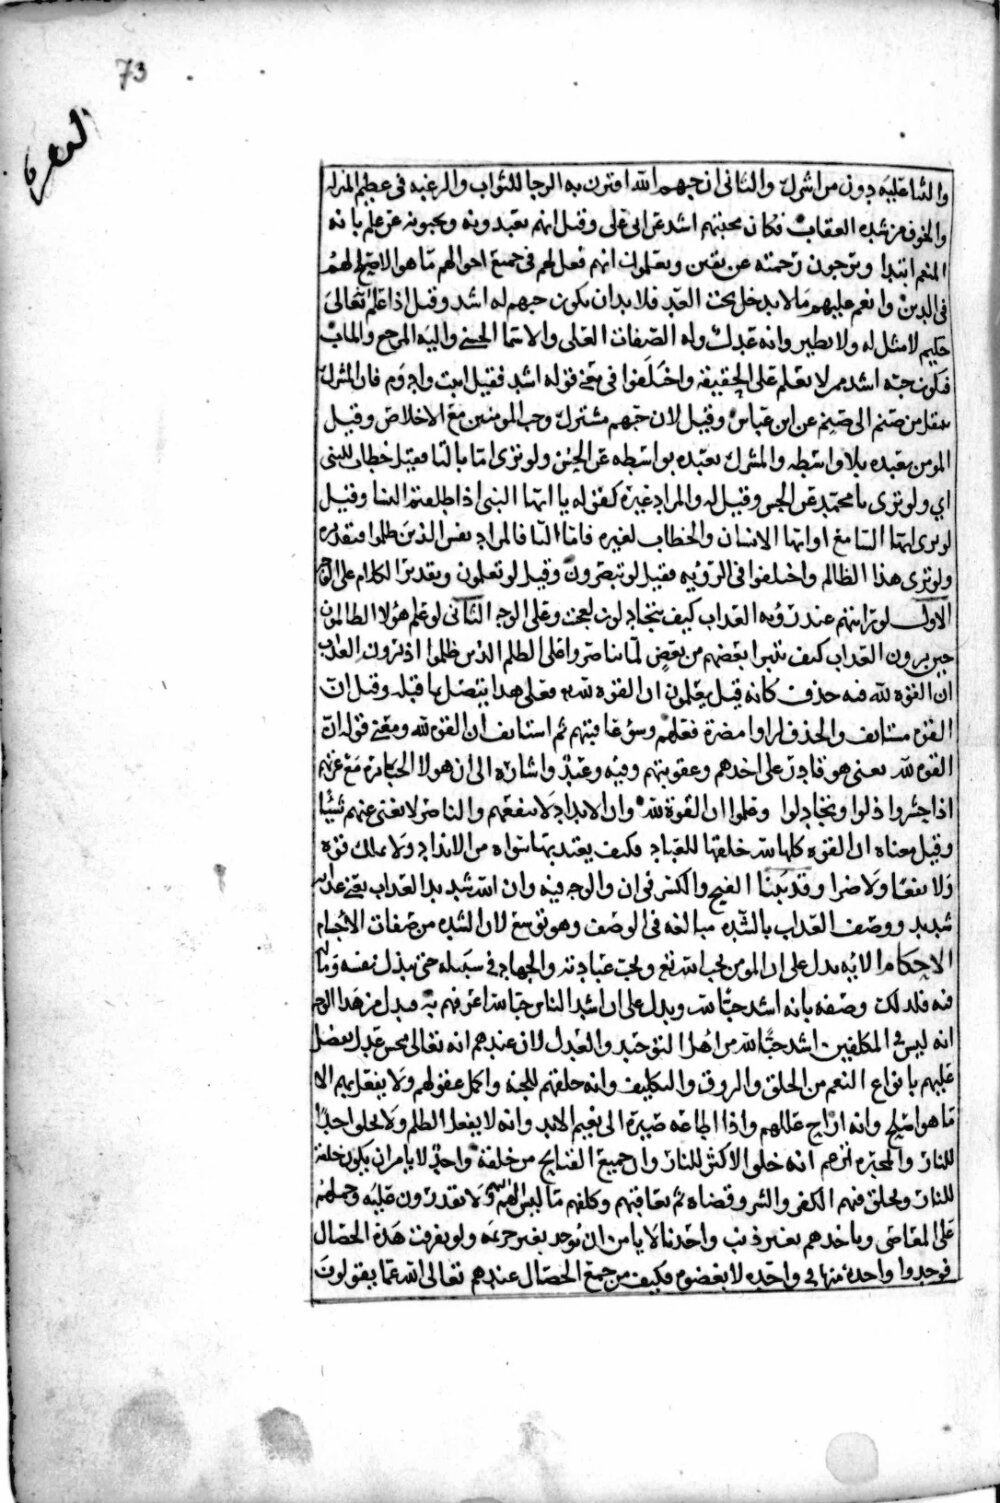 73
البقرة
والثنا عليه دون من اشرك والثانى ان حبهم الله اقترن به الرجا للثواب والرغبه فى عظيم المنزله
والخوف من شده العقاب فكان محبتهم اشد عن ابى على وقيل انهم يعبدونه ويحبونه عن علم بانه
المنعم ابتدا ويرجون رحمته عن يقين ويعلمون انه فعل لهم فى جميع احوالهم ما هو الاصلح لهم
فى الدين وانعم عليهم ما لا يدخل تحت العد فلا بد ان يكون حبهم له اشد وقيل اذا علم تعالى
حكيم لا مثل له ولا نظير وانه عدل وله الصفات العلى والاسما الحسنى واليه المرجع والماب
فيكون حبه اشد ممن لا يعلم على الحقيقه واختلفوا فى معنى قوله اشد فقيل اثبت وادوم فان المشرك
ينتقل من صنم الى صنم عن ابن عباس وقيل لان حبهم مشترك وحب المومنين مع الاخلاص وقيل
المومن يعبده بلا واسطه والمشرك يعبده بواسطه عن الحسن ولو ترى اما بالتا فقيل خطاب للنبى
اي ولو ترى يا محمد عن الحسن وقيل له والمراد غيره كقوله يا ايها النبى اذا طلقتم النسا وقيل
لو ترى ايها السامع او ايها الانسان والخطاب لغيره فاما التا فالمراد نفس الذين ظلموا فتقديره
ولو ترى هذا الظالم واختلفوا فى الرؤيه فقيل لو تبصرون وقيل لو تعلمون وتقدير الكلام على الوجه
الاول لو ترا يتهم عند رؤيه العذاب كيف يتجادلون لعجبت وعلى الوجه الثانى لو علم هؤلا الظالمون
حين يرون العذاب كيف يتبرا بعضهم من بعض لما تناصروا على الظلم الذين ظلموا اذ يرون العذاب
ان القوه لله فيه حذف كانه قيل يعلمون ان القوه لله فعلى هذا يتصل بما قبله وقيل ان
القوه مستانف والحذف لراوا مضرة فعلهم وسؤ عاقبتهم ثم استانف ان القوه لله ومعنى قوله ان
القوه لله يعنى هو قادر على اخذهم وعقوبتهم وفيه وعيد واشاره الى ان هولا الجبابره مع عزتهم
اذا حشروا ذلوا وتخاذلوا وعلموا ان القوة لله وان الانداد لا ينفعهم والناصر لا يغنى عنهم شيئا
وقيل معناه ان القوه كلها لله خلقها للعباد فكيف يعتد بها سواه من الانداد ولا يملك قوه
ولا نفعا ولا ضرا وقد بينا الفتح والكسر فى ان والوجه فيه وان الله شديد العذاب يعنى عذابه
شديد ووصف العذاب بالشده مبالغه فى الوصف وهو توسع لان الشده من صفات الاجسام
الاحكام الايه تدل على ان المومن يحب الله تع ويحب عبادته والجهاد فى سبيله حتى يبذل نفسه وماله
فيه فلذلك وصفه بانه اشد حبا لله ويدل على ان اشد الناس حبا لله اعرفهم به فيدل من هذا الوجه
انه ليس فى المكلفين اشد حبا لله من اهل التوحيد والعدل لان عندهم انه تعالى محسن عدل تفضل
عليهم بانواع النعم من الخلق والرزق والتكليف وانه خلقهم للجنه واكمل عقولهم ولا يفعل بهم الا
ما هو اصلح وانه ازاح عللهم واذا اطاعه صيره الى نعيم الابد وانه لا يفعل الظلم ولا يخلق احدا
للنار والمجبره تزعم انه خلق الاكثر للنار وان جميع القبايح من خلقه واحد لا يامن ان يكون خلقه
للنار ويخلق فيهم الكفر والشر وقضاه ثم يعاقبهم وكلفهم ما ليس لهم ولا يقدرون عليه وحملهم
على المعاصى وياخذهم بغير ذنب واحدنا لا يامن ان يؤخذ بغير جرمه ولو تفرقت هذه الخصال
فوجدوا واحدة منها فى واحد لا بغضوه فكيف من جمع الخصال عندهم تعالى الله عما يقولون